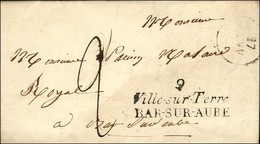 Monsieur
Monsieur Notaire
Royal 2
9
Ville-sur-Terre
BAR-SUR-AUBE
a Bar sur aube